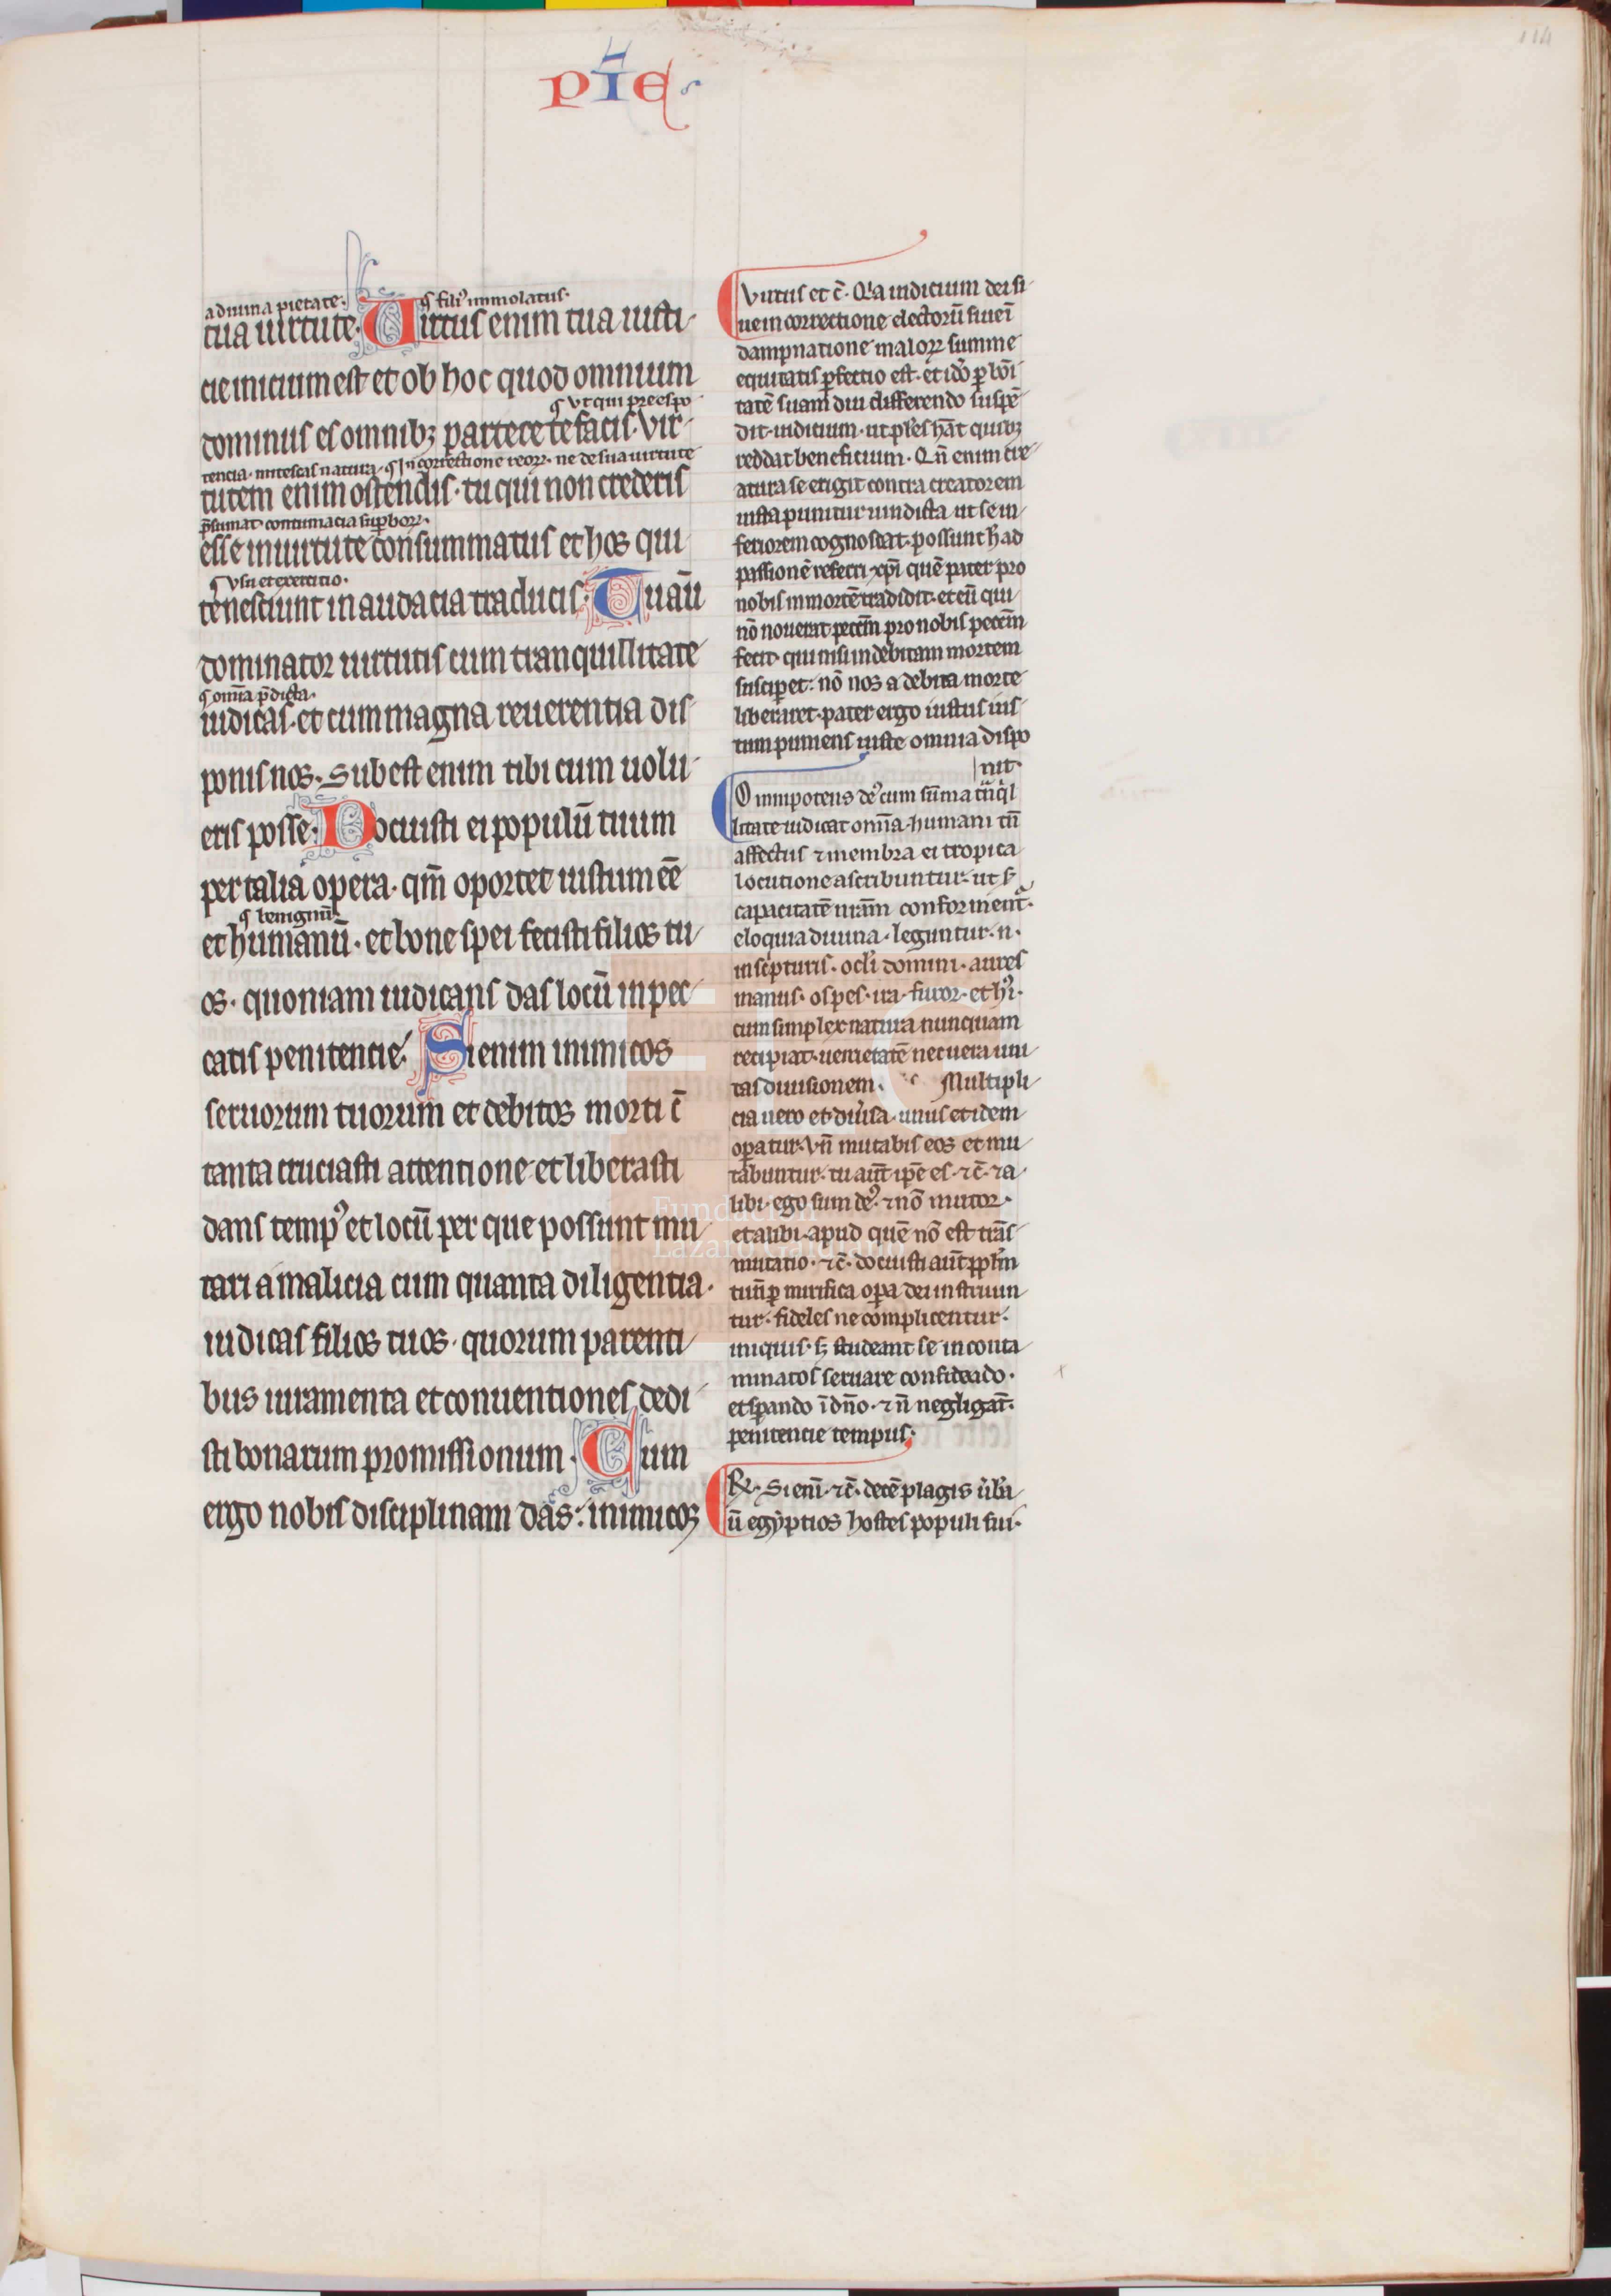 pīe
a diuina pietate. ꝙ fili᷒ immolatus.
tua uirtute. Uirtus enim tua iusti
cie inicium est et ob hoc quod omnium
ꝙ Vt qui preespo
dominus es omnibꝫ parcere te facis. Vir
tencia. mitescas natura. ꝙ In correctione reoꝝ. ne de sua uirtute
tutem enim ostendis. tu qui non crederis
p̄sumat. contumacia suꝑboꝝ.
esse in uirtute consummatus et hos qui
ꝙ Vsu et exercitio.
te nesciunt in audacia traducis. Tu aū
dominator uirtutis cum tranquillitate
ꝙ om̄ia p̄dicta.
iudicas. et cum magna reuerentia dis
ponis nos. Subest enim tibi cum uolu
eris posse. Docuisti ei populū tuum
per talia opera. qm̄ oportet iustum eē
ꝙ benignū.
et humanū. et bone spei fecisti filios tu
os. quoniam iudicans das locū in pec
catis penitencie. Si enim inimicos
seruorum tuorum et debitos morti c̄
tanta cruciasti attentione et liberasti
dans temp᷒ et locū per que possunt mu
tari a malicia cum quanta diligentia.
iudicas filios tuos. quorum parenti
bus iuramenta et conuentiones dedi
sti bonarum promissionum. Cum
ergo nobis disciplinam das: inimicoꝫ
Virtus et c̄. Q'a iudicium dei si
ue in correctione electorū siue ī
dampnatione maloꝝ summe
equitatis ꝑfectio est. et idō ꝑ bōi
tatē suam diu differendo suspē
dit iudicium. ut ples hāt quibꝫ
reddat beneficium. Qn̄ enim cre
atura se erigit contra creatorem
iusta punitur uindicta ut se in
feriorem cognoscat. possunt h̄ ad
passionē referri xp̄i quē pater pro
nobis in mortē tradidit. et eū qui
nō nouerat peccm̄ pro nobis peccm̄
fecit. qui nisi indebitam mortem
susciꝑet: nō nos a debita morte
liberaret. pater ergo iustus ius
tum puniens iuste omnia dispo
nit.
Omnipotens de᷒ cum sūma tn̄q'l
litate iudicat om̄ia. humani tn̄
affectus ⁊ membra ei tropica
locutione ascribuntur. ut ẜ
capacitatē nr̄am conforment᷑.
eloquia diuina. leguntur. n.
in sc̄pturis. ocl'i domini. aures
manus. os pes. ira. furor. et h᷒i.
cum simplex natura nunquam
recipiat. uarietatē nec uera uni
tas diuisionem. Multipli
cia uero et diu̾sa. unus et idem
oꝑatur. Vn̄ mutabis eos et mu
tabuntur. tu aūt ip̄e es. ⁊ c̄. ⁊ a
libi. ego sum de᷒. ⁊ nō mutor.
et alibi. apud quē nō est trās
mutatio. ⁊ c̄. docuisti aūt ppl'm
tuū ꝑ mirifica oꝑa dei instruun
tur. fideles ne complicentur.
iniquis. ẜꝫ studeant se inconta
minatos seruare confidendo.
et sꝑando ī dn̄o. ⁊ n̄ negligāt.
penitencie tempus.
R̄. Si eni. ⁊ c̄. decē plagis
ū egyptios hostes populi sui.
114
FLG
Fundación
Lázaro Galdiano